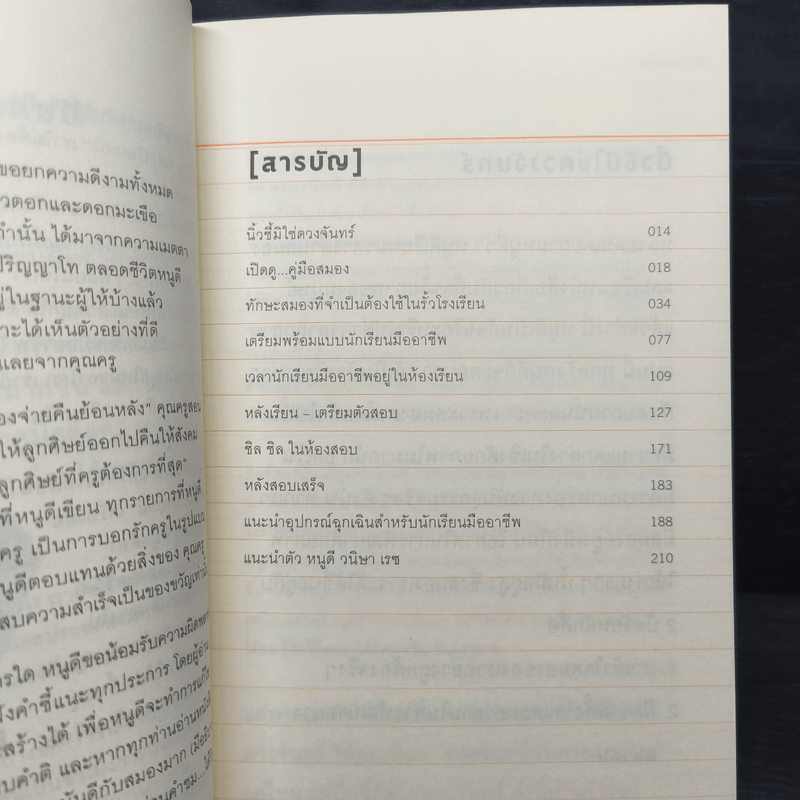 ขอยกความดีงามทั้งหมด
วตอกและดอกมะเขือ
ทำนั้น ได้มาจากความเมตตา
ปริญญาโท ตลอดชีวิตหนูดี
ยู่ในฐานะผู้ให้บ้างแล้ว
ราะได้เห็นตัวอย่างที่ดี
แลยจากคุณครู
องจ่ายคืนย้อนหลัง" คุณครูสอน
ให้ลูกศิษย์ออกไปคืนให้สังคม
ลูกศิษย์ที่ครูต้องการที่สุด"
ที่หนูดีเขียน ทุกรายการที่หนูดี
ครู เป็นการบอกรักครูในรูปแบบ
หนูดีตอบแทนด้วยสิ่งของ คุณครู
สบความสำเร็จเป็นของขวัญเท่านั้น
ารใด หนูดีขอน้อมรับความผิดพลาด
ังคำชี้แนะทุกประการ โดยผู้อ่าน
สร้างได้ เพื่อหนูดีจะทำการแก้ไข
บคำติ และหากทุกท่านอ่านหนังสือ
ดีกับสมองมาก
[สารบัญ]
นิ้วชี้มิใช่ดวงจันทร์ 014
เปิดดู...คู่มือสมอง 018
ทักษะสมองที่จำเป็นต้องใช้ในรั้วโรงเรียน 034
เตรียมพร้อมแบบนักเรียนมืออาชีพ 077
เวลานักเรียนมืออาชีพอยู่ในห้องเรียน 109
หลังเรียน – เตรียมตัวสอบ 127
ชิล ชิล ในห้องสอบ 171
หลังสอบเสร็จ 183
แนะนำอุปกรณ์ฉุกเฉินสำหรับนักเรียนมืออาชีพ 188
แนะนำตัว หนูดี วนิษา เรซ 210